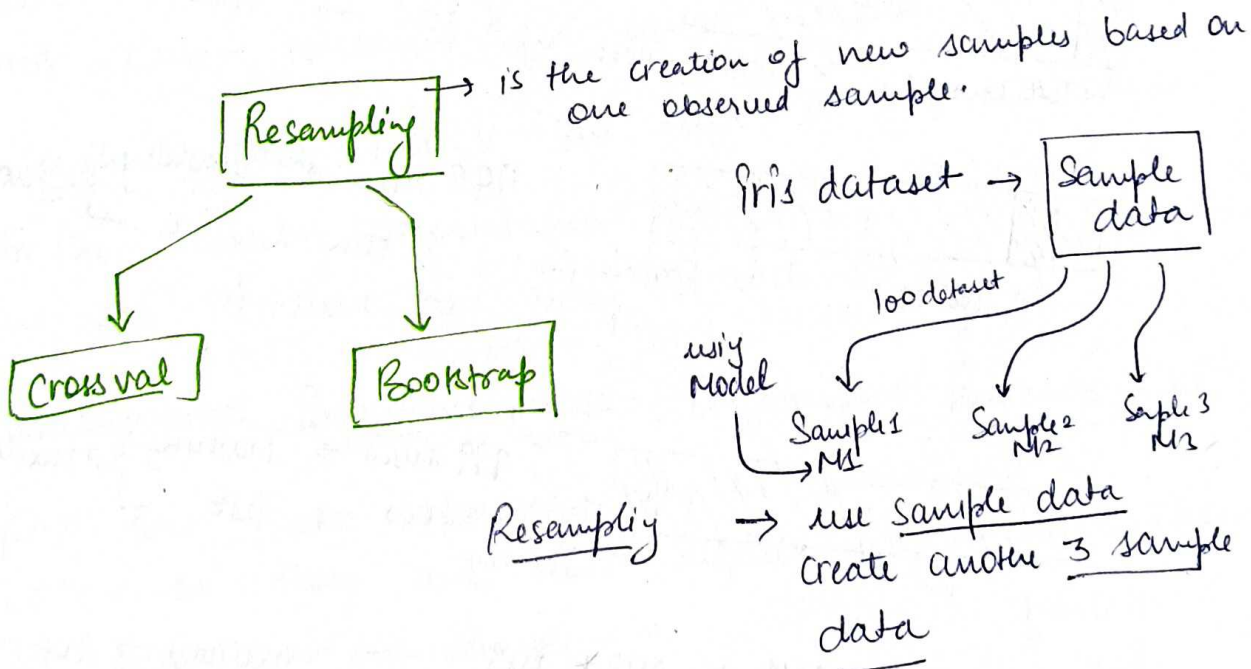 Resampling → is the creation of new samples based on
one observed sample.
Cross val
Bootstrap
Iris dataset → Sample
data
100 dataset
usiy
Model
Sample1
M1
Sample2
M2
Saple 3
M3
Resampliy → use sample data
create anothe 3 sample
data